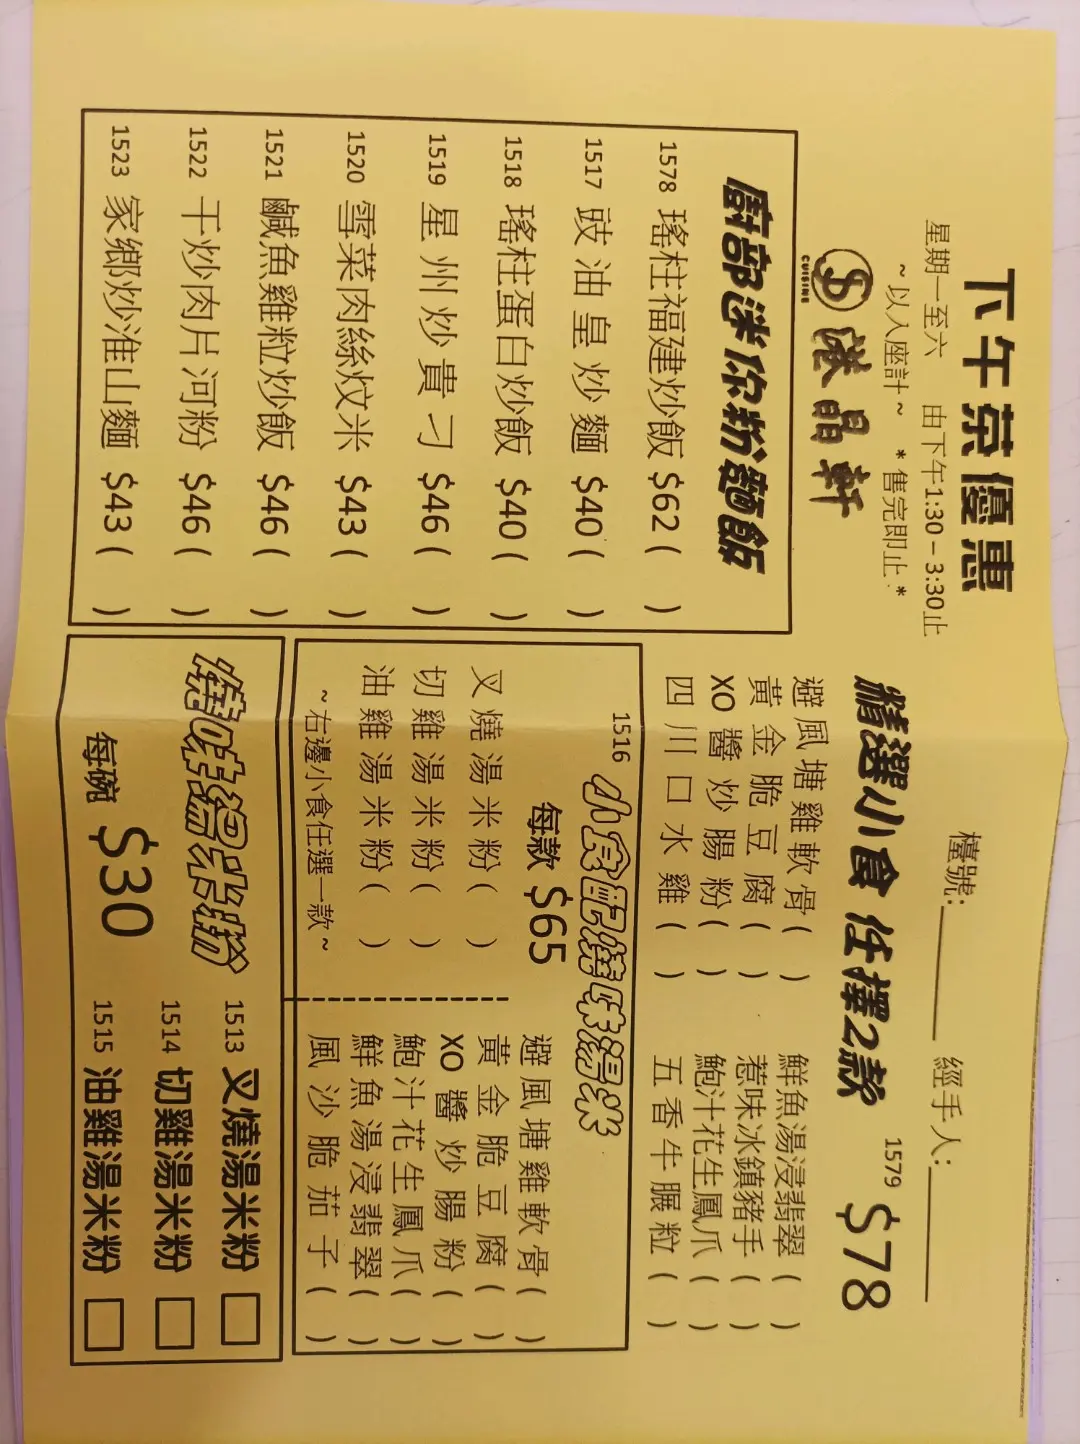 下午茶優惠
星期一至六 由下午1:30 – 3:30止
~ 以入座計 ~ *售完即止*
CUISINE
港晶軒
檯號:
經手人:
廚部迷你粉麵飯
1578 瑤柱福建炒飯 $62 ( )
1517 豉油皇炒麵 $40 ( )
1518 瑤柱蛋白炒飯 $40 ( )
1519 星州炒貴刁 $46 ( )
1520 雪菜肉絲炆米 $43 ( )
1521 鹹魚雞粒炒飯 $46 ( )
1522 干炒肉片河粉 $46 ( )
1523 家鄉炒淮山麵 $43 ( )
精選小食 任擇2款
1579
$78
避風塘雞軟骨 ( ) 鮮魚湯浸翡翠 ( )
黃金脆豆腐 ( ) 惹味冰鎮豬手 ( )
XO醬炒腸粉 ( ) 鮑汁花生鳳爪 ( )
四川口水雞 ( ) 五香牛𦟌粒 ( )
1516 小食配燒味湯米
每款 $65
叉燒湯米粉 ( )
切雞湯米粉 ( )
油雞湯米粉 ( )
~右邊小食任選一款~
避風塘雞軟骨 ( )
黃金脆豆腐 ( )
XO醬炒腸粉 ( )
鮑汁花生鳳爪 ( )
鮮魚湯浸翡翠 ( )
風沙脆茄子 ( )
燒味湯米粉
每碗 $30
1513 叉燒湯米粉 □
1514 切雞湯米粉 □
1515 油雞湯米粉 □